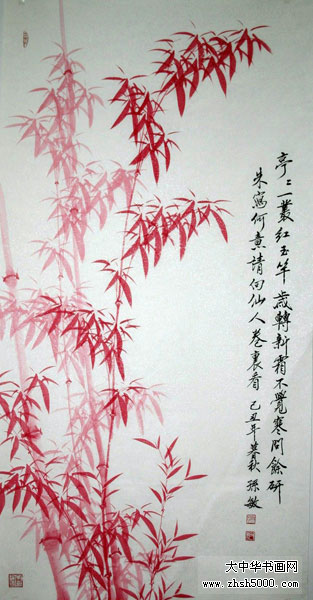 亭亭一叢紅玉竿歲轉新霜不覺寒問餘研
朱寫何意請向仙人卷裏看 己丑年暮秋 孫敏
大中华书画网
www.zhsh5000.com